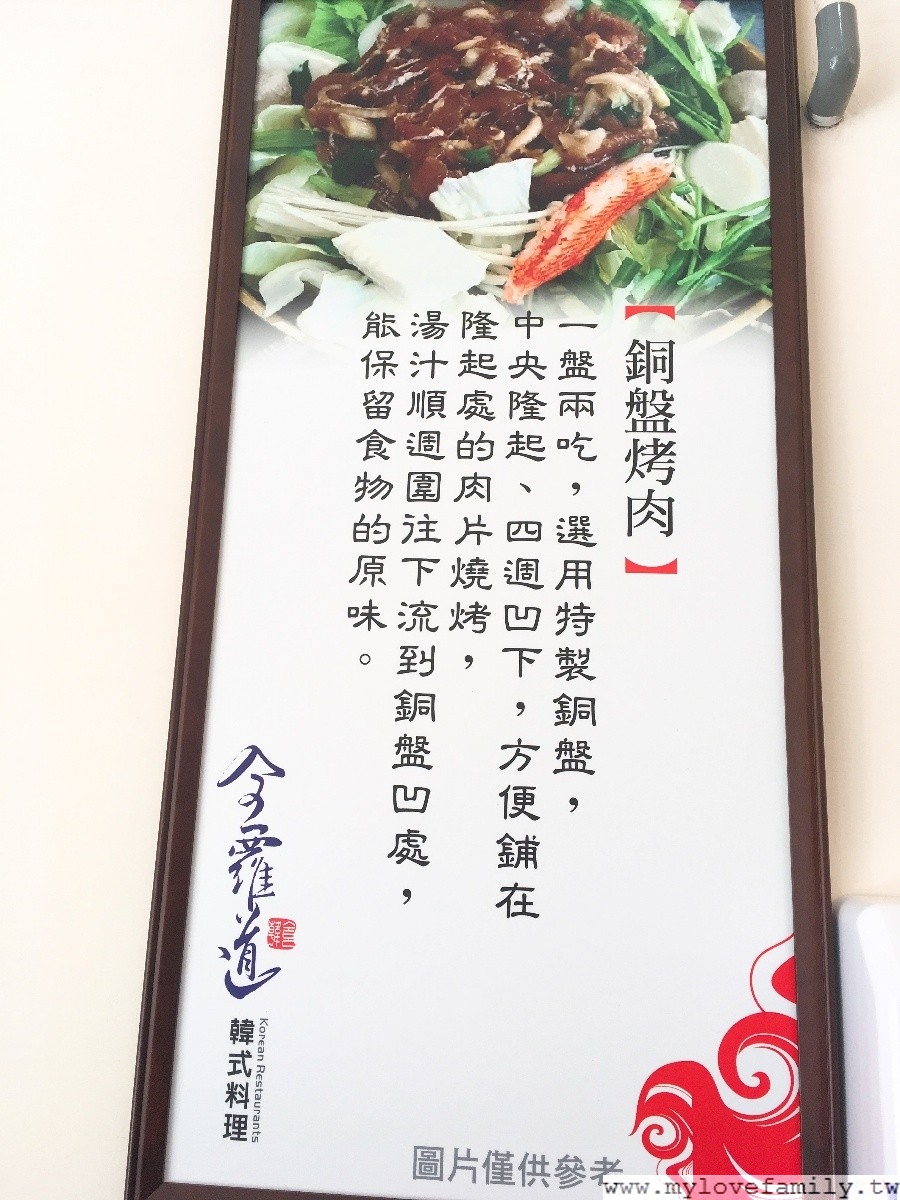 【銅盤烤肉】
一盤兩吃，選用特製銅盤，
中央隆起、四週凹下，方便鋪在
隆起處的肉片燒烤，
湯汁順週圍往下流到銅盤凹處，
能保留食物的原味。
全羅道
韓式料理
Korean Restaurants
圖片僅供參考
www.mylovefamily.tw